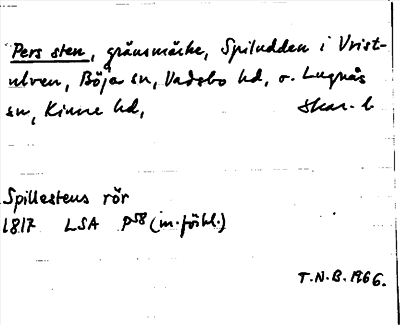 Pers sten, gränsmärke, Spiludden i Vrist-
ulven, Böja sn, Vadsbo hd, o. Lugnås
sn, Kinne hd, Skar. l
Spillestens rör
1817 LSA P58 (m. förhl.)
T.N.B. 1966.